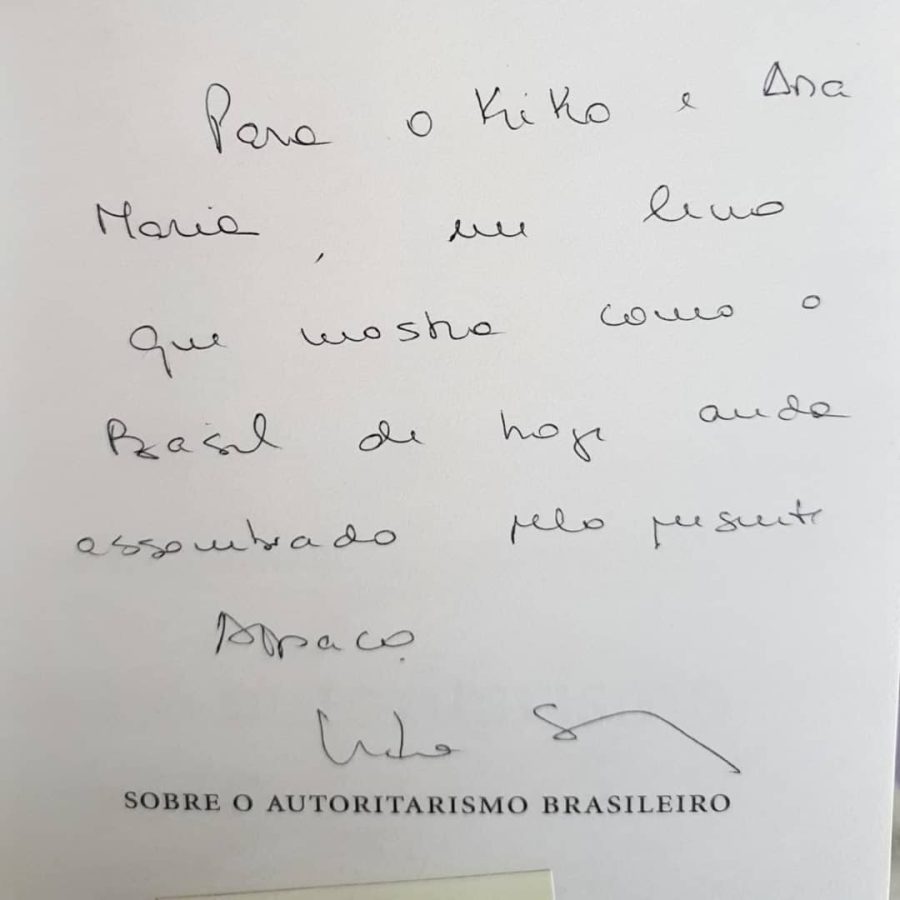 Para o Kiko e Ana
Maria, um livro
que mostra como o
Brasil de hoje anda
assombrado pelo presente
Abraço.
SOBRE O AUTORITARISMO BRASILEIRO